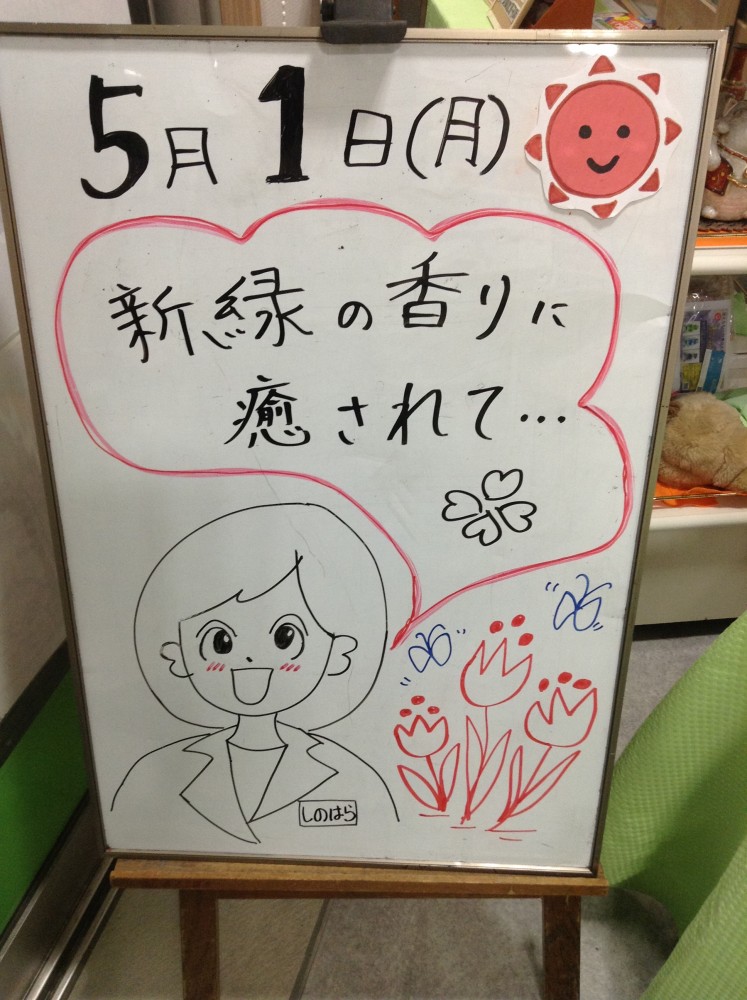 5月1日(月)
新緑の香りに
癒されて…
しのはら